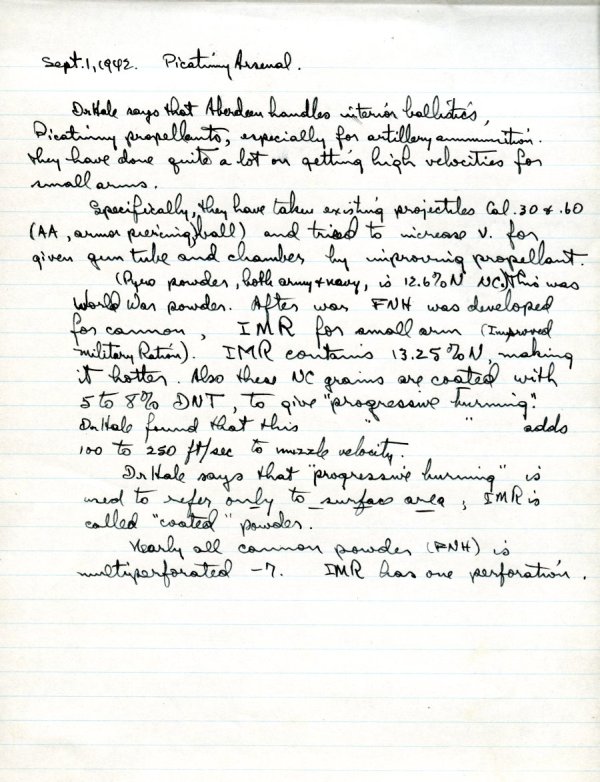 Sept. 1, 1942. Picatinny Arsenal.
Dr Hale says that Aberdeen handles interior ballistics,
Picatinny propellants, especially for artillery ammunition.
They have done quite a lot on getting high velocities for
small arms.
Specifically, they have taken existing projectiles Cal. .30 & .60
(AA, armor piercing, ball) and tried to increase v. for
given gun tube and chamber by improving propellant.
(Pyro powder, both army & navy, is 12.6% N NC.) This was
World War powder. After war FNH was developed
for cannon, IMR for small arm (Improved
Military Ration). IMR contains 13.25% N, making
it hotter. Also these NC grains are coated with
5 to 8% DNT, to give "progressive burning".
Dr Hale found that this " " adds
100 to 250 ft/sec to muzzle velocity.
Dr Hale says that "progressive burning" is
used to refer only to surface area; IMR is
called "coated" powder.
Nearly all cannon powder (FNH) is
multiperforated -7. IMR has one perforation.